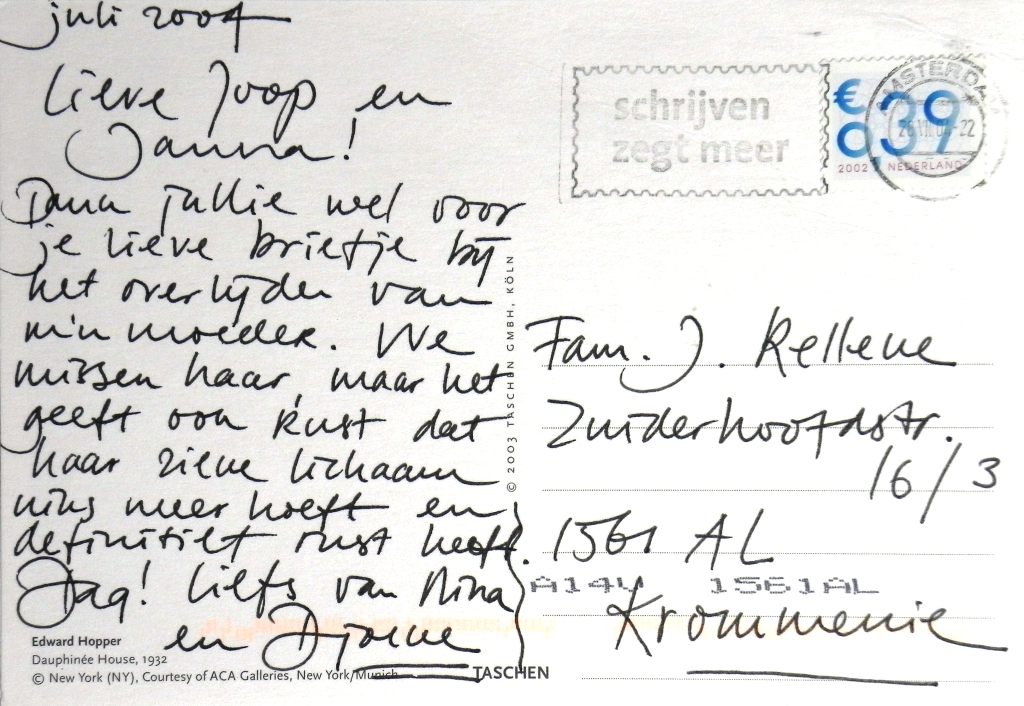 juli 2004
Lieve Joop en
Janna!
Dank jullie wel voor
je lieve briefje bij
het overlijden van
m'n moeder. We
missen haar, maar het
geeft ook rust dat
haar zieke lichaam
niks meer hoeft en
definitief rust heeft.
Dag! liefs van Nina
en
Edward Hopper
Dauphinée House, 1932
© New York (NY), Courtesy of ACA Galleries, New York/Munich
TASCHEN
© 2003 TASCHEN GMBH, KÖLN
schrijven
zegt meer
€
039
2002 NEDERLAND
AMSTERDA
26 VII 04-22
Fam. J.
Zuiderhoofdstr.
16/3
1561 AL
A14V 1561AL
Krommenie